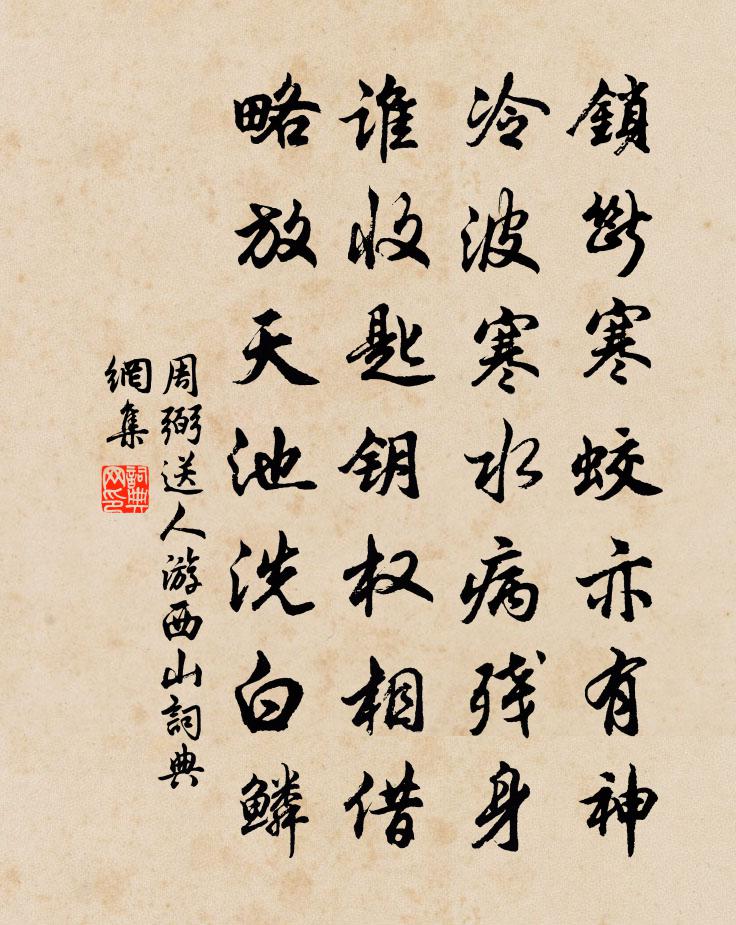 鎖斷寒蛟亦有神
冷波寒水病残身
谁收匙钥权相借
略放天池洗白鳞
周弼送人游西山詞典
網集
詞典
网印